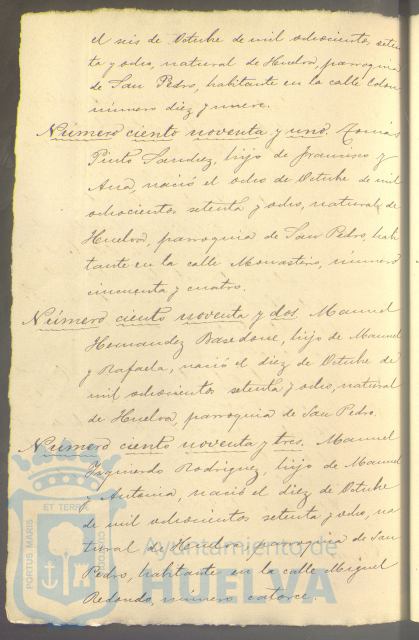 el seis de Octubre de mil ochocientos seten
ta y ocho, natural de Huelva, parroquia
de San Pedro, habitante en la calle Colon
número diez y nueve.
Número ciento noventa y uno. Tomás
Pinto Sanchez, hijo de Francisco y
Ana, nació el ocho de Octubre de mil
ochocientos setenta y ocho, natural de
Huelva, parroquia de San Pedro, habi
tante en la calle Monasterio, número
cincuenta y cuatro.
Número ciento noventa y dos. Manuel
Hernandez hijo de Manuel
y Rafaela, nació el diez de Octubre de
mil ochocientos setenta y ocho, natural
de Huelva, parroquia de San Pedro.
Número ciento noventa y tres. Manuel
Izquierdo Rodriguez, hijo de Manuel
y Antonia, nació el diez de Octubre
de mil ochocientos setenta y ocho, na
tural de Huelva, parroquia de San
Pedro, habitante en la calle Miguel
Redondo, número catorce.
Ayuntamiento de
HUELVA
PORTUS MARIS ET TERRAE CUSTODIA